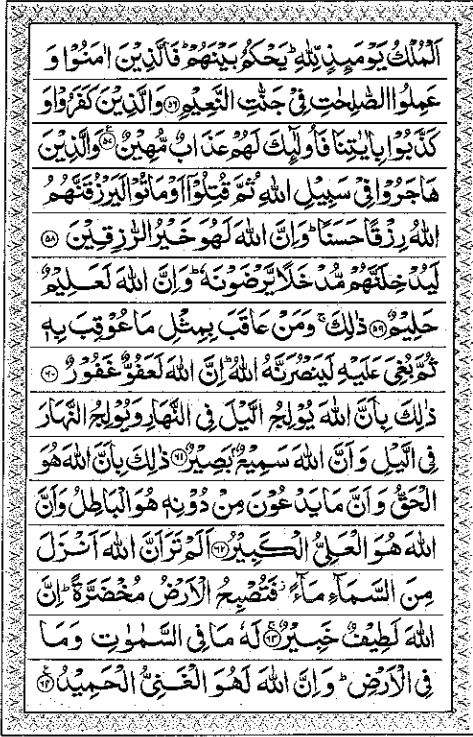 اَلْمُلْكُ يَوْمَىِٕذٍ لِّلّٰهِ ؕ يَحْكُمُ بَيْنَهُمْ ؕ فَالَّذِيْنَ اٰمَنُوْا وَ
عَمِلُوا الصّٰلِحٰتِ فِيْ جَنّٰتِ النَّعِيْمِ ﴿۵۶﴾ وَالَّذِيْنَ كَفَرُوْا وَ
كَذَّبُوْا بِاٰيٰتِنَا فَاُولٰٓىِٕكَ لَهُمْ عَذَابٌ مُّهِيْنٌ ﴿۵۷﴾ ع وَالَّذِيْنَ
هَاجَرُوْا فِيْ سَبِيْلِ اللّٰهِ ثُمَّ قُتِلُوْۤا اَوْ مَاتُوْا لَيَرْزُقَنَّهُمُ
اللّٰهُ رِزْقًا حَسَنًا ؕ وَاِنَّ اللّٰهَ لَهُوَ خَيْرُ الرّٰزِقِيْنَ ﴿۵۸﴾
لَيُدْخِلَنَّهُمْ مُّدْخَلًا يَّرْضَوْنَهٗ ؕ وَاِنَّ اللّٰهَ لَعَلِيْمٌ
حَلِيْمٌ ﴿۵۹﴾ ذٰلِكَ ۚ وَمَنْ عَاقَبَ بِمِثْلِ مَا عُوْقِبَ بِهٖ
ثُمَّ بُغِيَ عَلَيْهِ لَيَنْصُرَنَّهُ اللّٰهُ ؕ اِنَّ اللّٰهَ لَعَفُوٌّ غَفُوْرٌ ﴿۶۰﴾
ذٰلِكَ بِاَنَّ اللّٰهَ يُوْلِجُ الَّيْلَ فِي النَّهَارِ وَيُوْلِجُ النَّهَارَ
فِي الَّيْلِ وَاَنَّ اللّٰهَ سَمِيْعٌۢ بَصِيْرٌ ﴿۶۱﴾ ذٰلِكَ بِاَنَّ اللّٰهَ هُوَ
الْحَقُّ وَاَنَّ مَا يَدْعُوْنَ مِنْ دُوْنِهٖ هُوَ الْبَاطِلُ وَاَنَّ
اللّٰهَ هُوَ الْعَلِيُّ الْكَبِيْرُ ﴿۶۲﴾ اَلَمْ تَرَ اَنَّ اللّٰهَ اَنْزَلَ
مِنَ السَّمَآءِ مَآءً ۫ فَتُصْبِحُ الْاَرْضُ مُخْضَرَّةً ؕ اِنَّ
اللّٰهَ لَطِيْفٌ خَبِيْرٌ ﴿۶۳﴾ ۚ لَهٗ مَا فِي السَّمٰوٰتِ وَمَا
فِي الْاَرْضِ ؕ وَاِنَّ اللّٰهَ لَهُوَ الْغَنِيُّ الْحَمِيْدُ ﴿۶۴﴾ ع